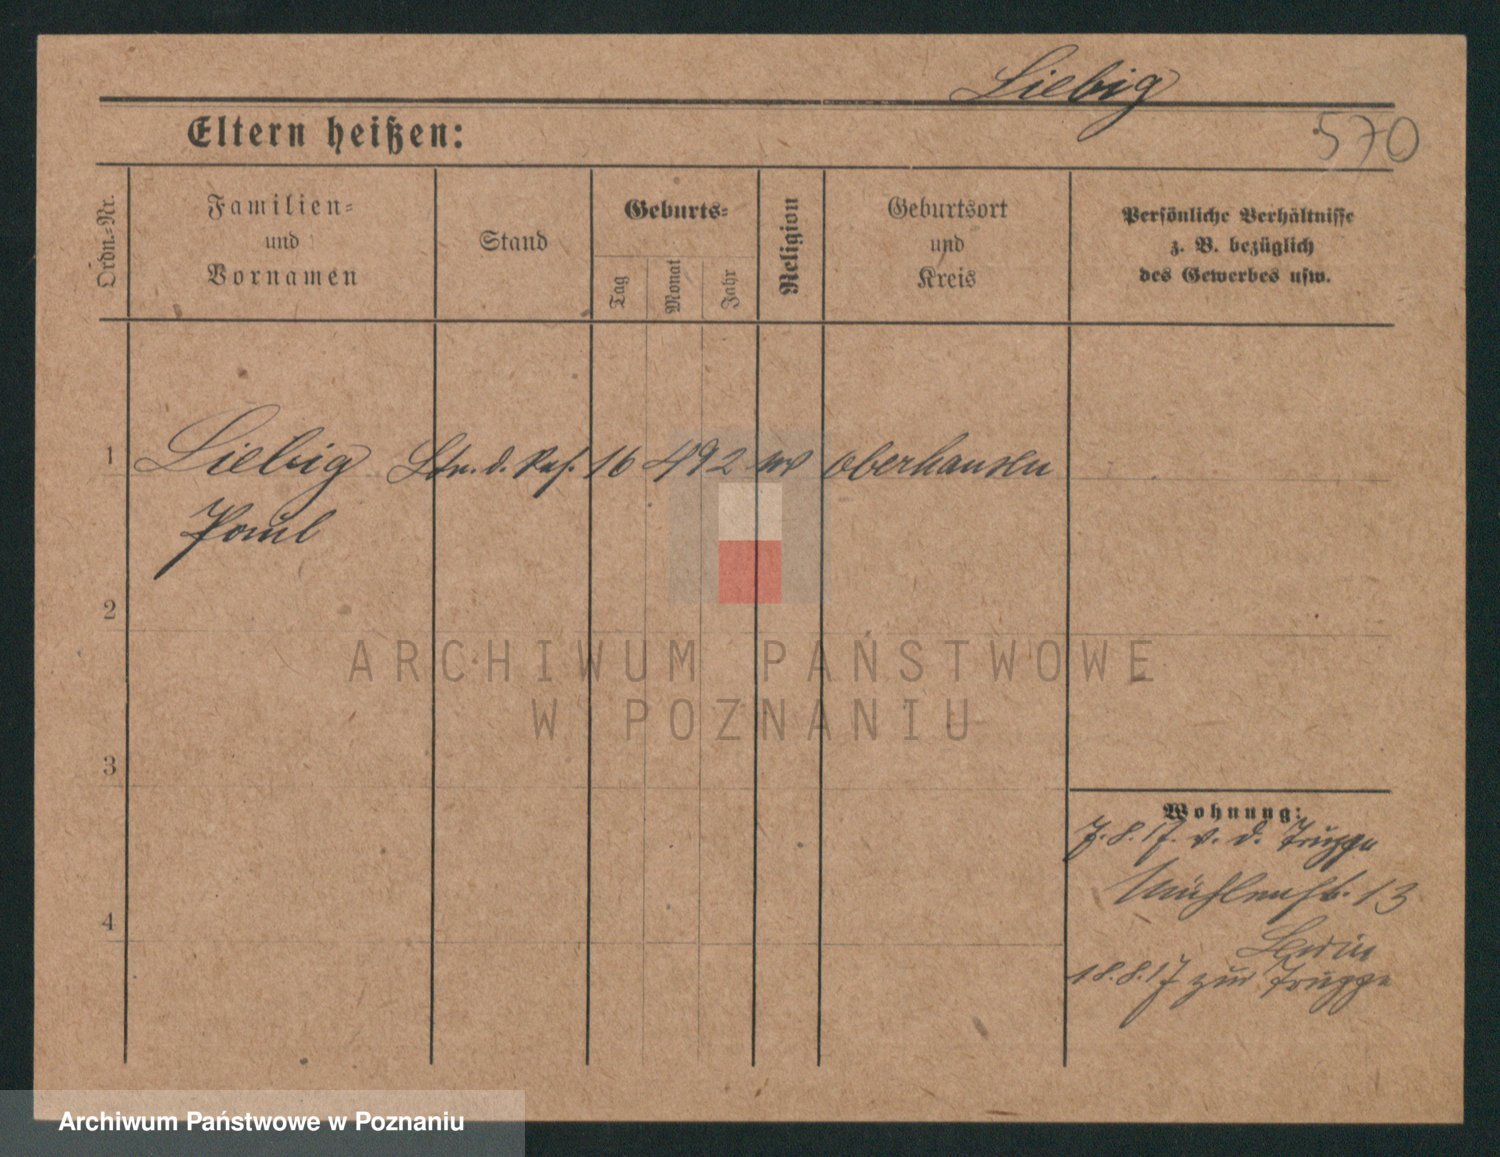 Liebig
570
Eltern heißen:
Ordn.-Nr.
Familien-
und
Vornamen
Stand
Geburts-
Tag
Monat
Jahr
Religion
Geburtsort
und
Kreis
Persönliche Verhältnisse
z. B. bezüglich
des Gewerbes usw.
1 Liebig Ltn. d. Res. 16 4 92 Oberhausen
Paul
2
3
4
Wohnung:
7.8.17. v. d. Truppe
Mühlenstr. 13
Berlin
18.8.17 zur Truppe
ARCHIWUM PAŃSTWOWE
W POZNANIU
Archiwum Państwowe w Poznaniu